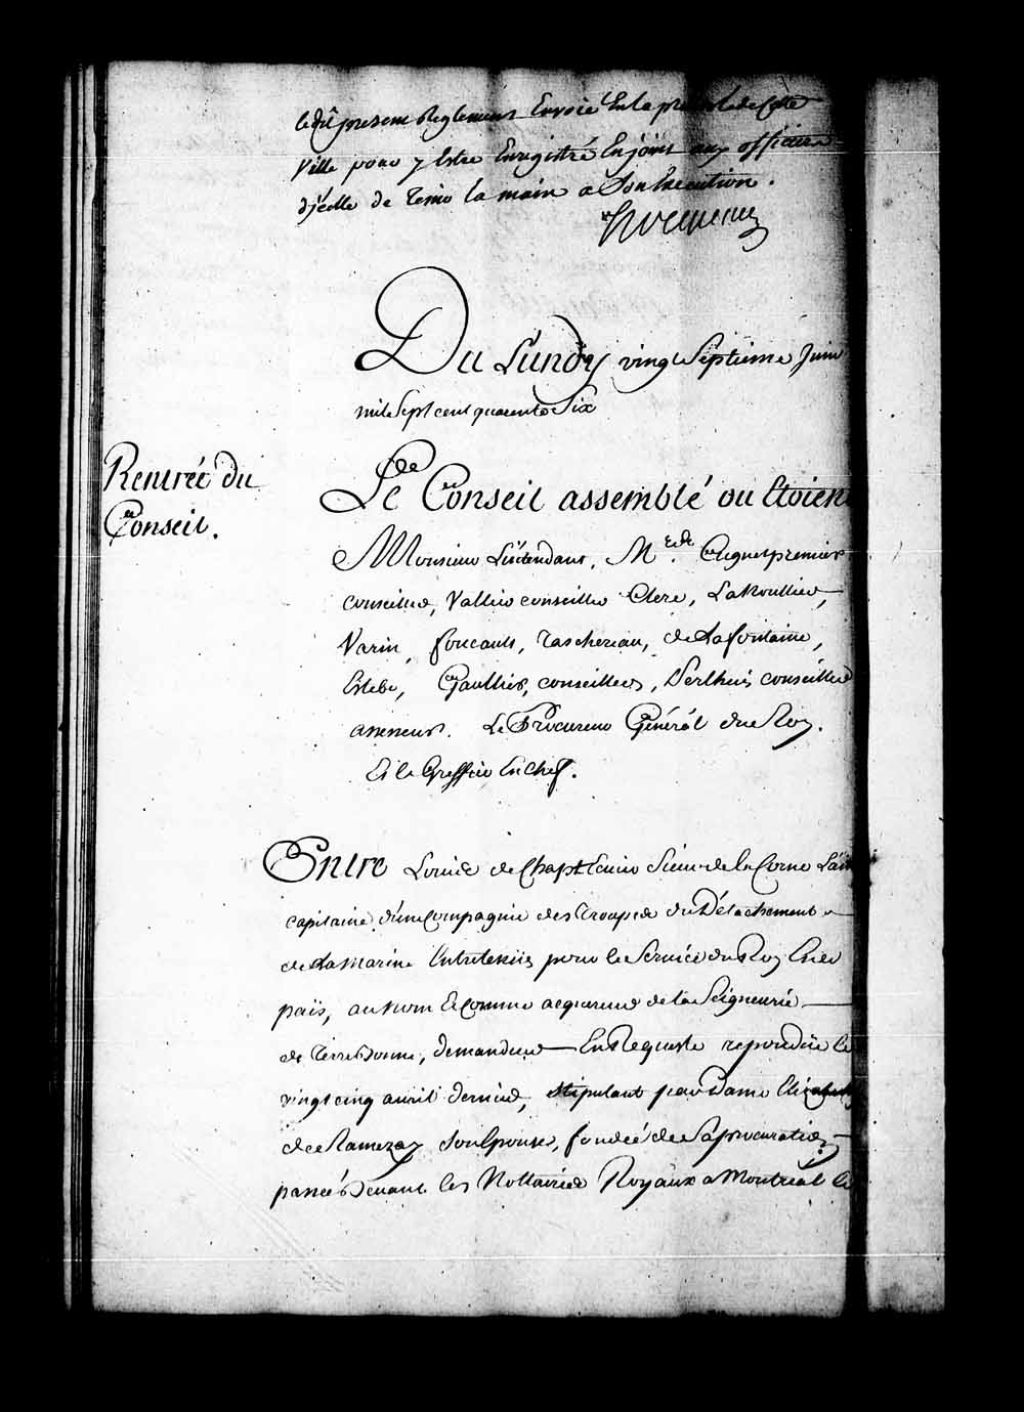 ledit present Reglement Envoié En la prevosté de cette
Ville pour y Estre Enregistré Enjoint aux officiers
d'jcelle de Tenir la main a Son Execution.
Hocquart
Du Lundy vingt Septiéme Juin
mil Sept cent quarente Six
Rentrée du
Conseil.
Le Conseil assemblé ou Etoient
Monsieur L'intendant, Mrs. de Cugnet premier
Conseiller, Vallier conseiller Clerc, LaNoullier,
Varin, foucault, Taschereau, de Lafontaine,
Estebe, Gaultier, conseillers, Perthuis conseiller
assesseur. Le Procureur Général du Roy.
Et le Greffier En Chef.
Entre Louis de Chapt Ecuier Sieur de la Corne L'ainé
capitaine d'une compagnie des troupes du Détachement
de La Marine Entretenües pour le Service du Roy En ce
païs, au nom Et comme acquereur de la Seigneurie
de Terrebonne, demandeur En Requeste repondüe le
vingt cinq avril dernier, stipulant par Dame Elizabeth
de Ramezay Son Epouse, fondée de Sa procuration
passée devant les Nottaires Royaux a Montreal le